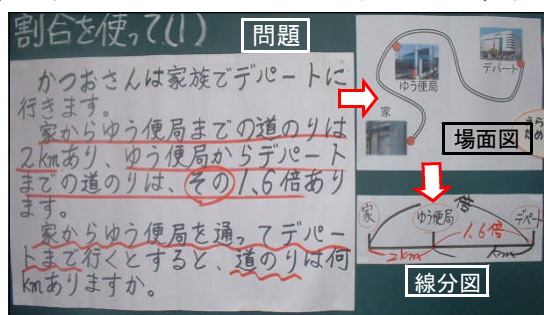 割合を使って(1)
問題
かつおさんは家族でデパートに
行きます。
家からゆう便局までの道のりは
2kmあり、ゆう便局からデパート
までの道のりは、その1、6倍あり
ます。
家からゆう便局を通ってデパー
トまで行くとすると、道のりは何
kmありますか。
デパート
ゆう便局
家
場面図
倍
家
ゆう便局
デパート
1.6倍
2km
km
線分図